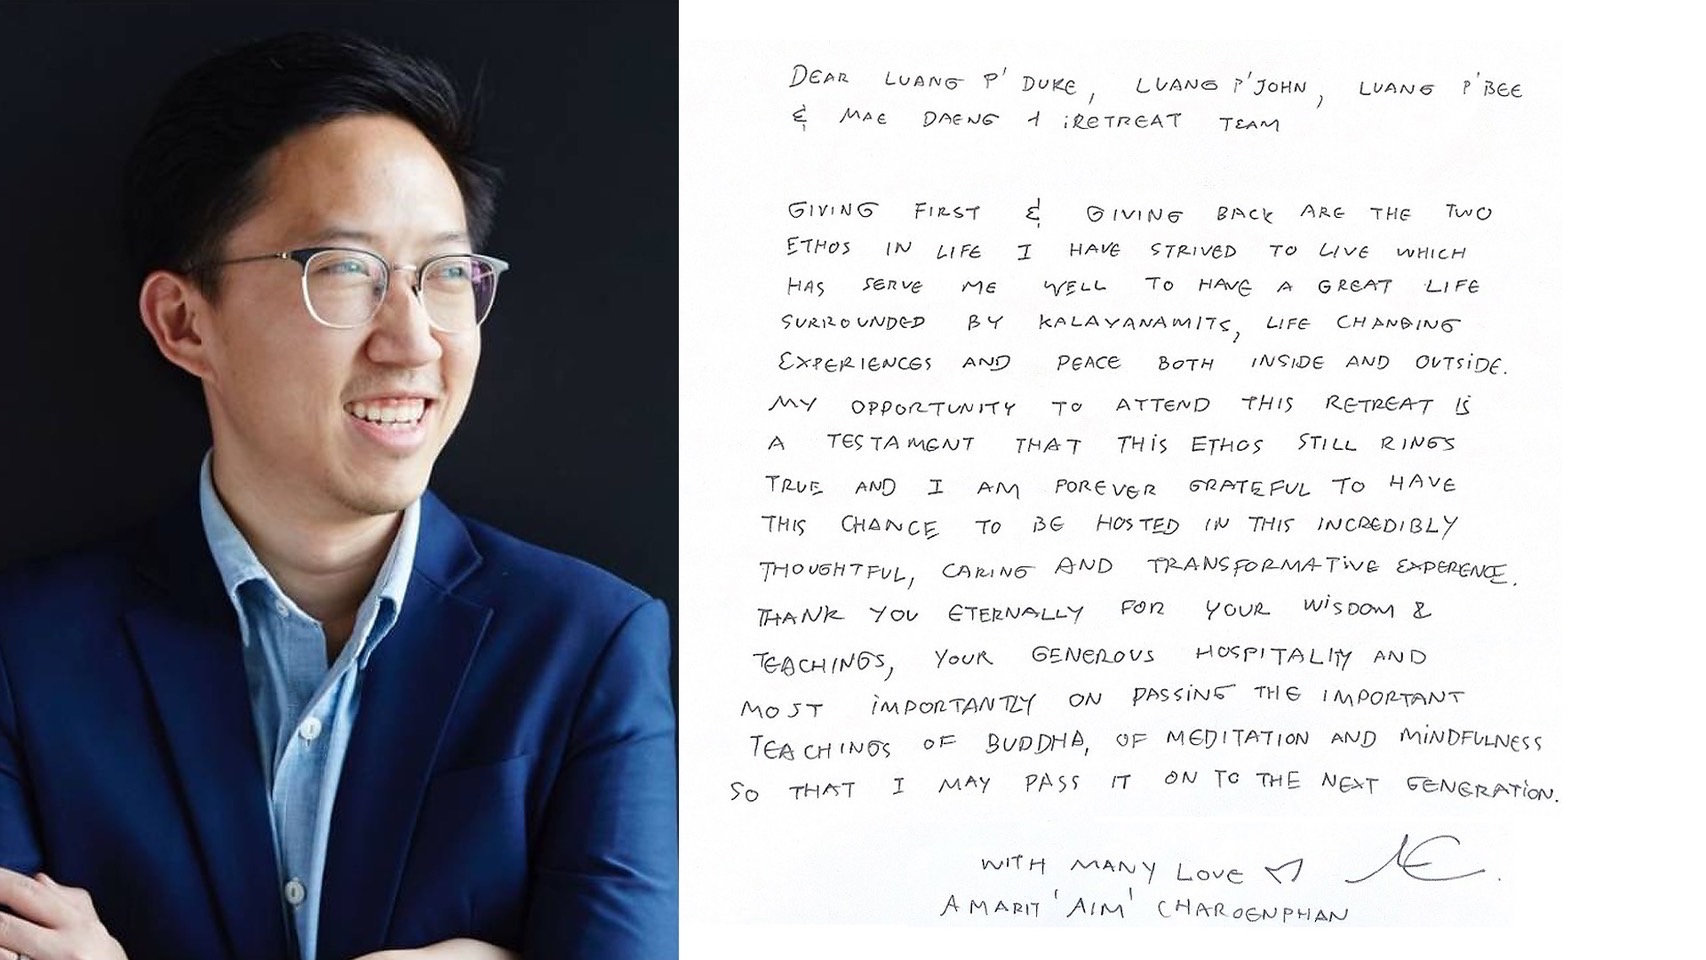 DEAR LUANG P' DUKE, LUANG P'JOHN, LUANG P'BEE
& MAE DAENG + iRETREAT TEAM
GIVING FIRST & GIVING BACK ARE THE TWO
ETHOS IN LIFE I HAVE STRIVED TO LIVE WHICH
HAS SERVE ME WELL TO HAVE A GREAT LIFE
SURROUNDED BY KALAYANAMITS, LIFE CHANGING
EXPERIENCES AND PEACE BOTH INSIDE AND OUTSIDE.
MY OPPORTUNITY TO ATTEND THIS RETREAT IS
A TESTAMENT THAT THIS ETHOS STILL RINGS
TRUE AND I AM FOREVER GRATEFUL TO HAVE
THIS CHANCE TO BE HOSTED IN THIS INCREDIBLY
THOUGHTFUL, CARING AND TRANSFORMATIVE EXPERENCE.
THANK YOU ETERNALLY FOR YOUR WISDOM &
TEACHINGS, YOUR GENEROUS HOSPITALITY AND
MOST IMPORTANTLY ON PASSING THE IMPORTANT
TEACHINGS OF BUDDHA, OF MEDITATION AND MINDFULNESS
SO THAT I MAY PASS IT ON TO THE NEXT GENERATION.
WITH MANY LOVE ♡
AMARIT 'AIM' CHAROENPHAN